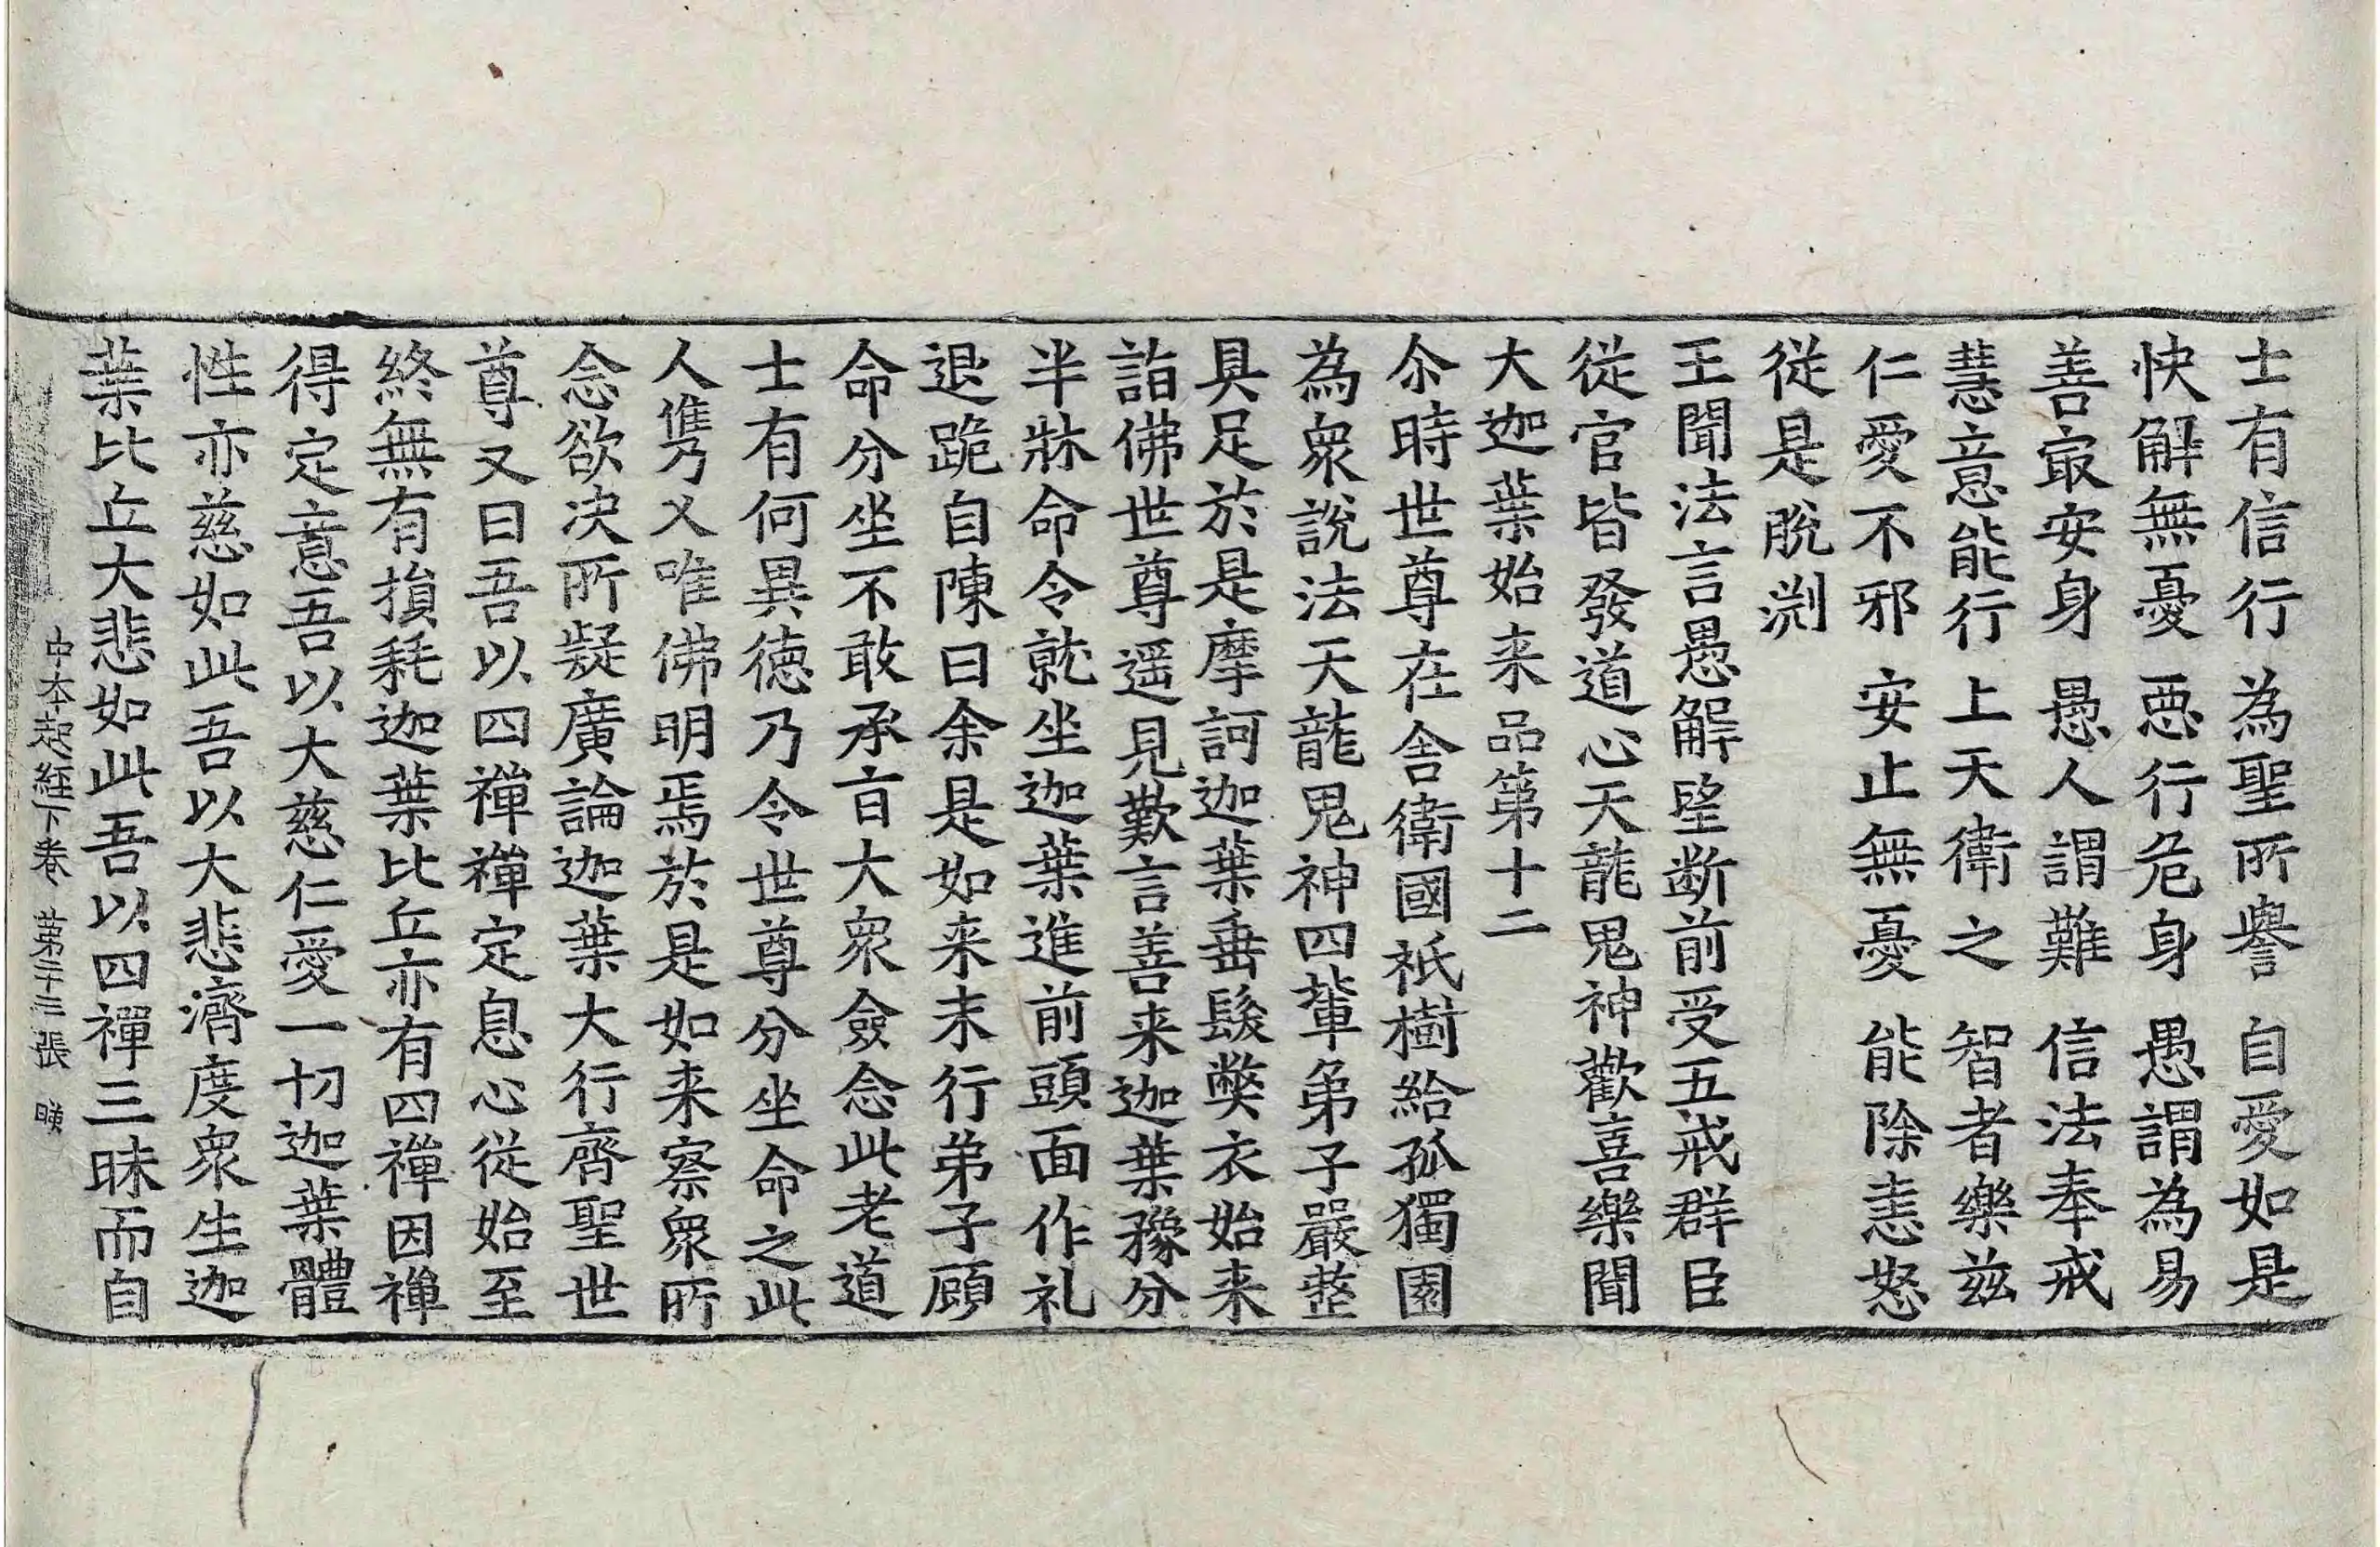 士有信行　為聖所譽　自愛如是
快解無憂　惡行危身　愚謂為易
善㝡安身　愚人謂難　信法奉戒
慧意能行　上天衛之　智者樂兹
仁愛不邪　安止無憂　能除恚怒
從是脫渕
王聞法言愚解望断前受五戒群臣
從官皆發道心天龍鬼神歡喜樂聞
大迦葉始来品第十二
尒時世尊在舍衛國祇樹給孤獨園
為衆說法天龍鬼神四輩弟子嚴整
具足於是摩訶迦葉垂髮弊衣始来
詣佛世尊遥見歎言善来迦葉豫分
半牀命令就坐迦葉進前頭面作礼
退跪自陳曰余是如来末行弟子顧
命分坐不敢承旨大衆僉念此老道
士有何異德乃令世尊分坐命之此
人㑺乃又唯佛明焉於是如来察衆所
念欲决所疑廣論迦葉大行齊聖世
尊又曰吾以四禪禪定息心從始至
終無有損耗迦葉比丘亦有四禪因禪
得定意吾以大慈仁愛一切迦葉體
性亦慈如此吾以大悲濟度衆生迦
葉比丘大悲如此吾以四禪三昧而自
中本起經下卷　第二十三張